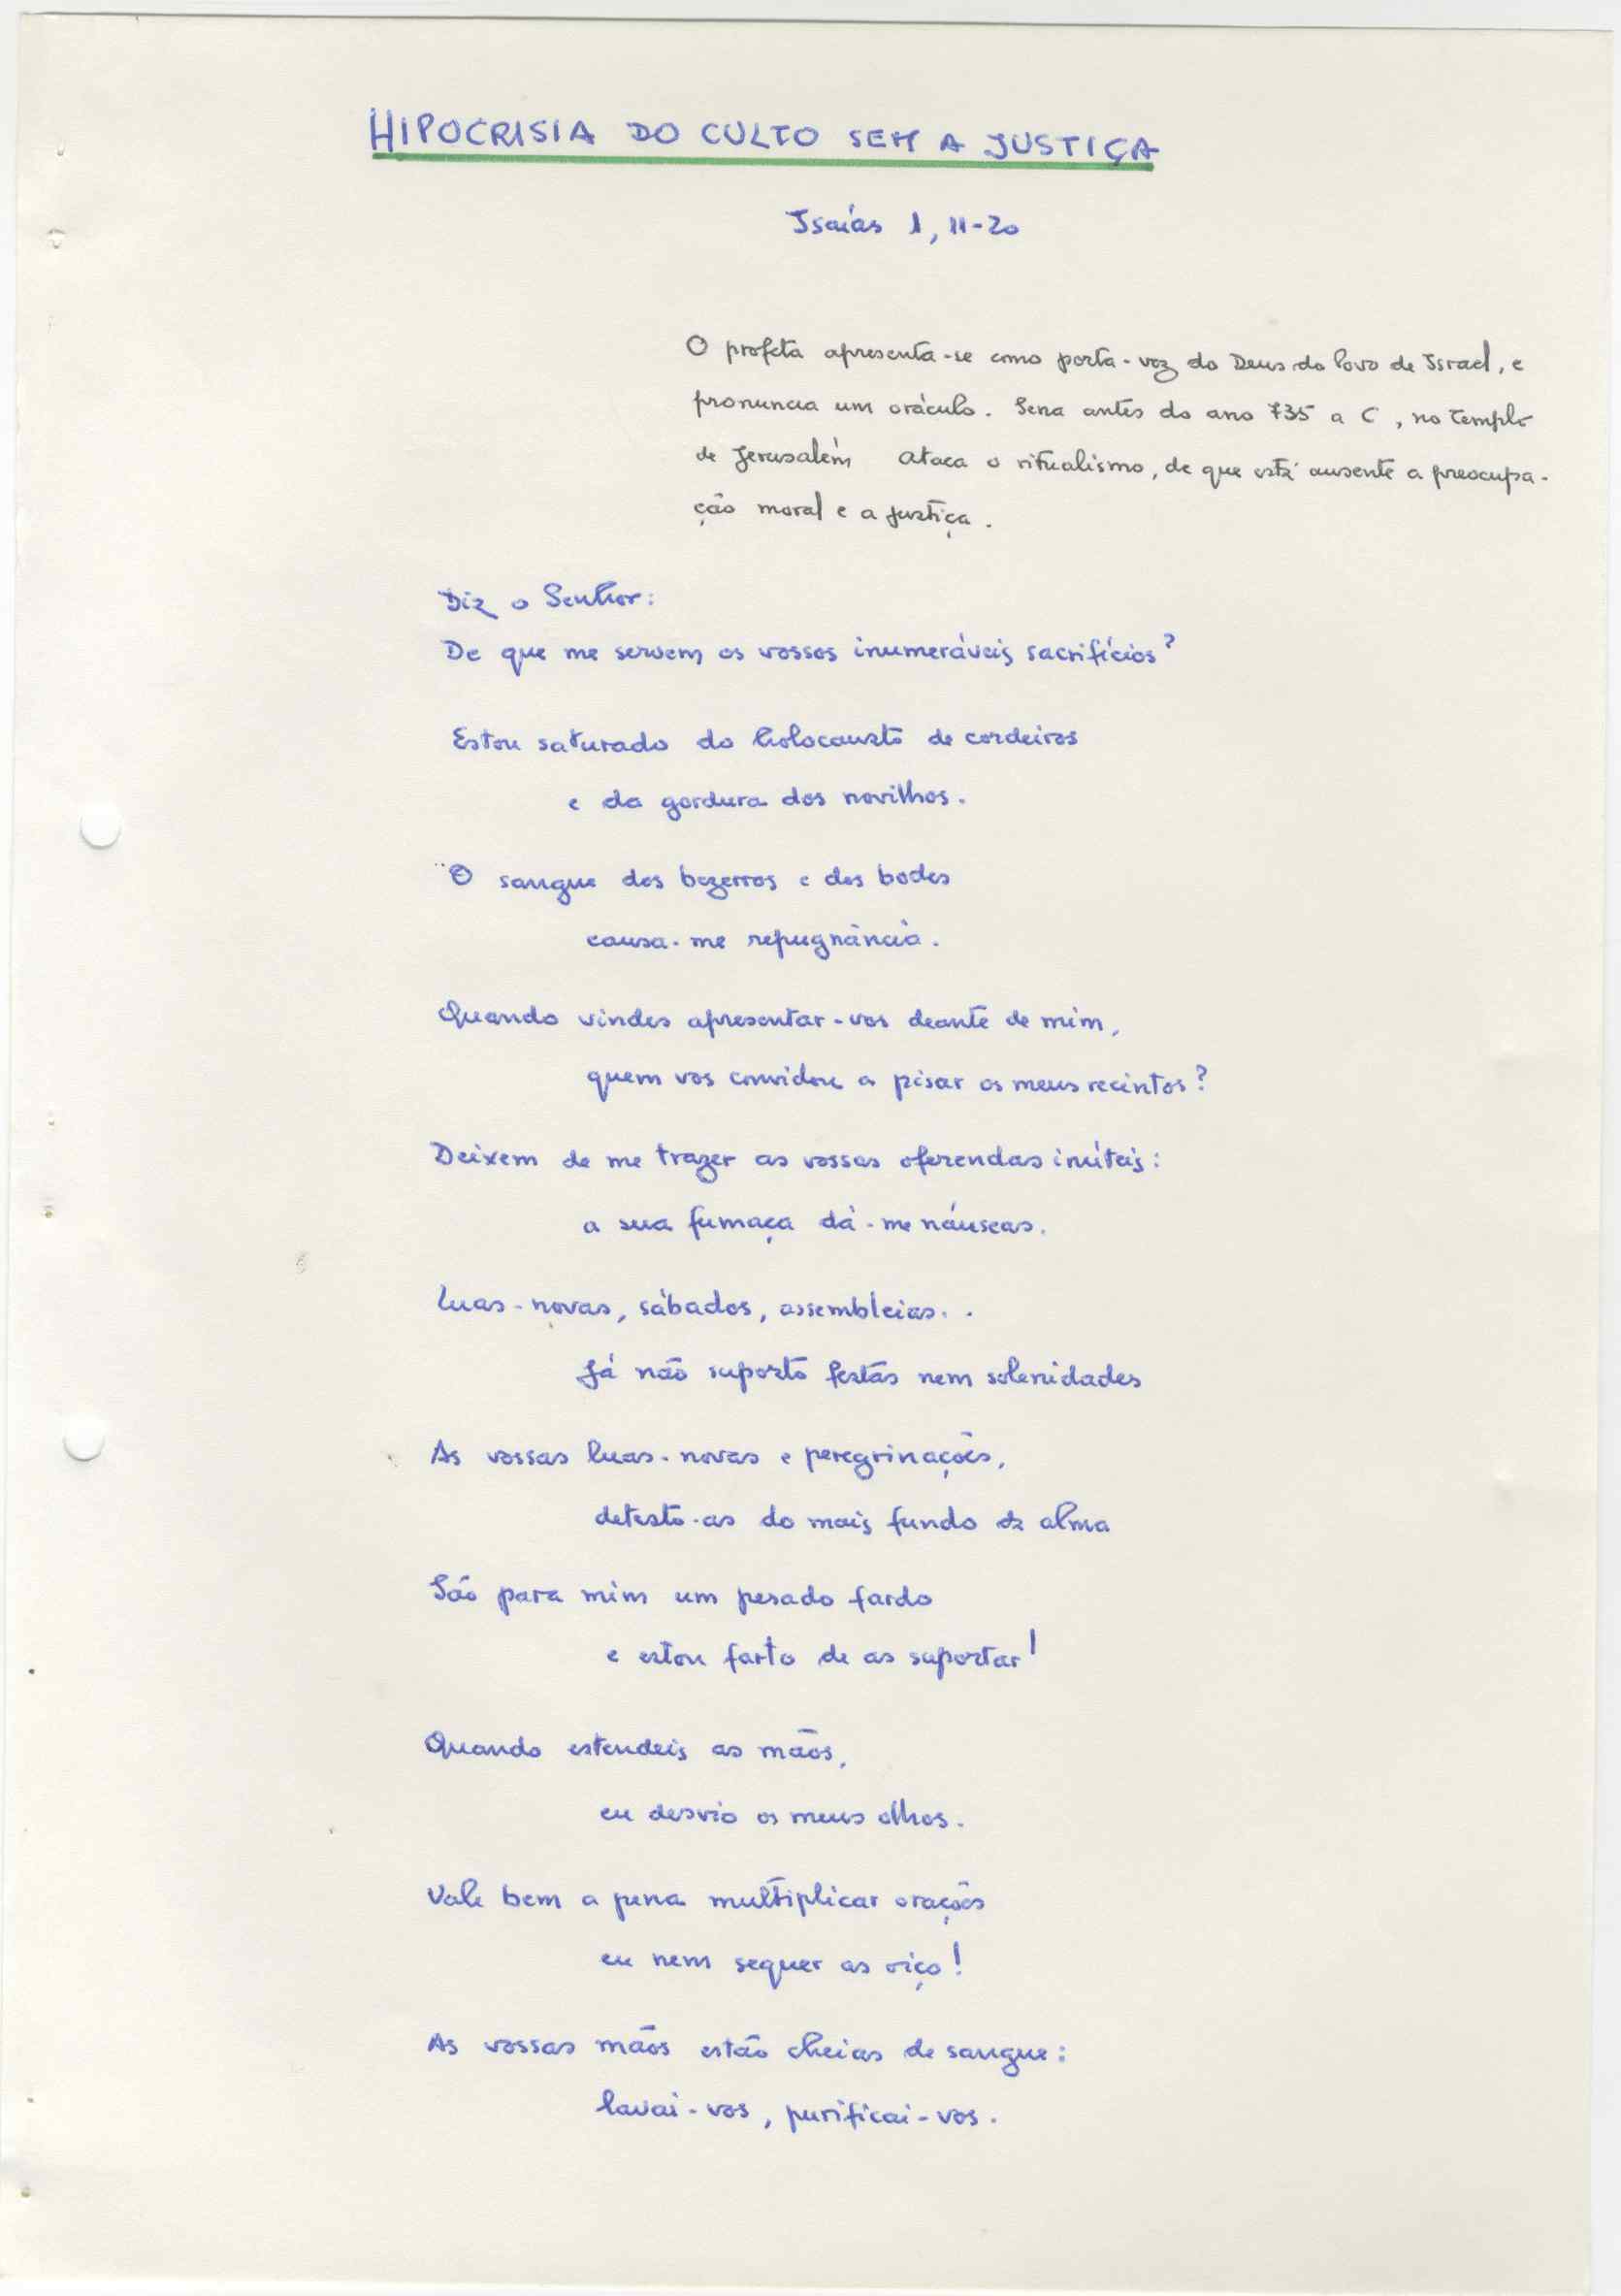 HIPOCRISIA DO CULTO SEM A JUSTIÇA
Isaías 1, 11-20
O profeta apresenta-se como porta-voz do Deus do Povo de Israel, e
pronuncia um oráculo. Seria antes do ano 735 a C, no Templo
de Jerusalém ataca o ritualismo, de que está ausente a preocupa-
ção moral e a justiça.
Diz o Senhor:
De que me servem os vossos inumeráveis sacrifícios?
Estou saturado do holocausto de cordeiros
e da gordura dos novilhos.
O sangue dos bezerros e dos bodes
causa-me repugnância.
Quando vindes apresentar-vos deante de mim,
quem vos convidou a pisar os meus recintos?
Deixem de me trazer as vossas oferendas inúteis:
a sua fumaça dá-me náuseas.
Luas-novas, sábados, assembleias..
Já não suporto festas nem solenidades
As vossas luas-novas e peregrinações,
detesto-as do mais fundo da alma
São para mim um pesado fardo
e estou farto de as suportar!
Quando estendeis as mãos,
eu desvio os meus olhos.
Vale bem a pena multiplicar orações
eu nem sequer as oiço!
As vossas mãos estão cheias de sangue:
lavai-vos, purificai-vos.